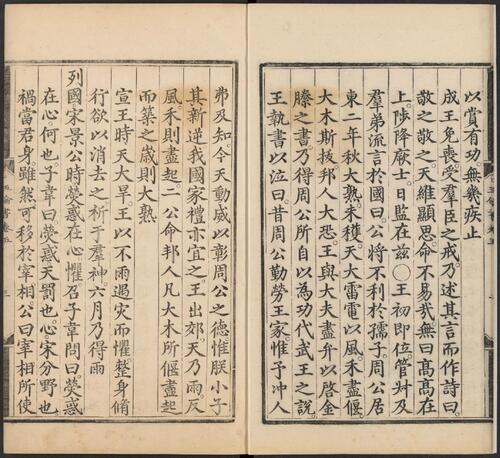 以賞有功無幾疾止
成王免喪受羣臣之戒乃述其言而作詩曰
敬之敬之天維顯思命不易哉無曰高高在
上陟降厥士日監在兹○王初即位管叔及
羣弟流言於國曰公將不利於孺子周公居
東二年秋大熟未穫天大雷電以風禾盡偃
大木斯拔邦人大恐王與大夫盡弁以啓金
縢之書乃得周公所自以為功代武王之說
王執書以泣曰昔周公勤勞王家惟予冲人
弗及知今天動威以彰周公之德惟朕小子
其新逆我國家禮亦宜之王出郊天乃雨反
風禾則盡起二公命邦人凡大木所偃盡起
而築之歲則大熟
宣王時天大旱王以不雨遇灾而懼整身脩
行欲以消去之祈于羣神六月乃得雨
列國宋景公時熒惑在心懼召子韋問曰熒惑
在心何也子韋曰熒惑天罰也心宋分野也
禍當君身雖然可移於宰相公曰宰相所使
五倫書卷五